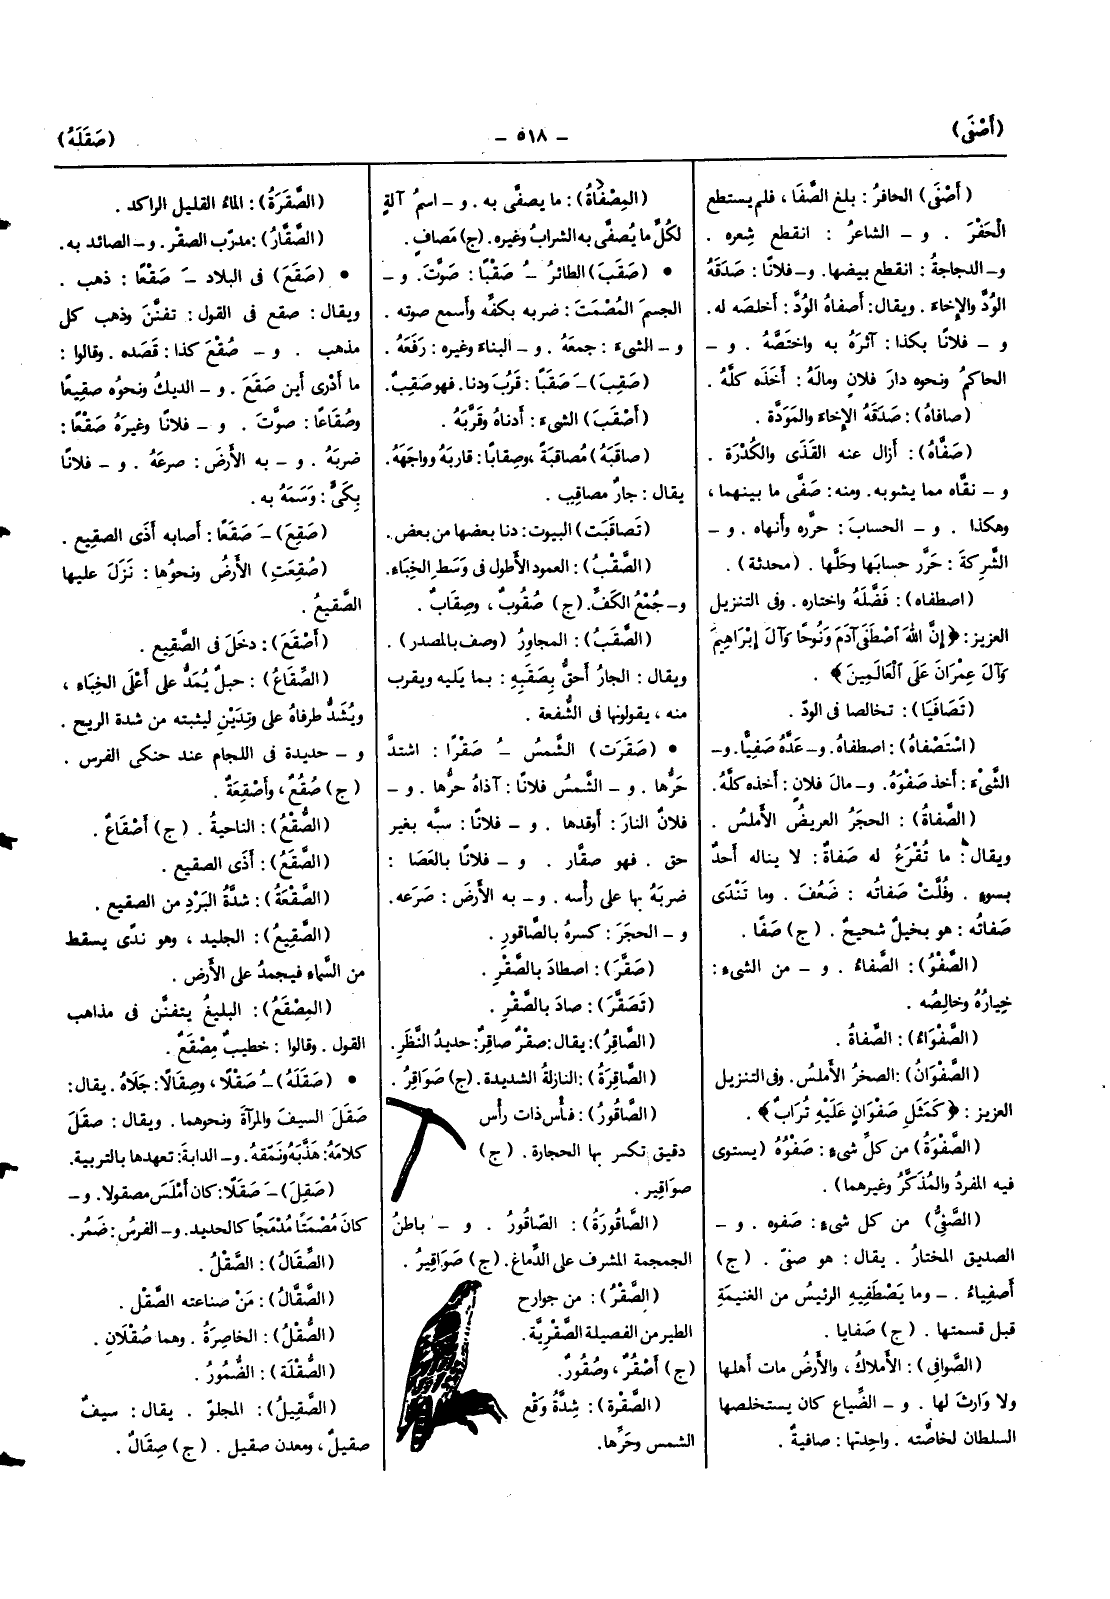 (أَصْفَى)
— ٥١٨ —
(صَقَلَهُ)
(أَصْفَى) الحافرُ: بلغ الصَّفَا، فلم يستطع
الْحَفْرَ. و — الشاعرُ: انقطع شِعره.
و— الدجاجةُ: انقطع بيضها. و— فلانًا: صَدَقَهُ
الوُدَّ والإخاءَ. ويقال: أصفاهُ الوُدَّ: أخلصَه له.
و — فلانًا بكذا: آثَرَهُ به واختَصَّهُ. و —
الحاكمُ ونحوه دارَ فلانٍ ومالَهُ: أَخَذَه كلَّهُ.
(صافاهُ): صَدَقَهُ الإخاءَ والمَوَدَّة.
(صَفَّاهُ): أزال عنه القَذَى والكُدْرَة.
و — نقَّاه مما يشوبه. ومنه: صَفَّى ما بينهما،
وهكذا. و — الحسابَ: حرَّره وأنهاه. و —
الشَّرِكةَ: حَرَّر حسابَها وحَلَّها. (محدثة).
(اصطفاه): فَضَّلَهُ واختاره. وفى التنزيل
العزيز: ﴿إِنَّ اللهَ اصْطَفَى آدَمَ وَنُوحًا وَآلَ إِبْرَاهِيمَ
وَآلَ عِمْرَانَ عَلَى الْعَالَمِينَ﴾.
(تَصَافَيَا): تخالصا فى الودّ.
(اسْتَصْفاهُ): اصطفاهُ. و— عَدَّهُ صَفِيًّا. و—
الشَّىْءَ: أخذ صَفْوَهُ. و— مالَ فلانٍ: أخذه كلَّهُ.
(الصَّفاةُ): الحجَرُ العريضُ الأَملسُ.
ويقال: ما تُقْرَعُ له صَفاةٌ: لا يناله أحدٌ
بسوءٍ. وفُلَّتْ صَفاتُه: ضَعُفَ. وما تَنْدَى
صَفاتُه: هو بخيلٌ شحيحٌ. (ج) صَفًا.
(الصَّفْوُ): الصَّفاءُ. و — من الشىءِ:
خِيارُهُ وخالِصُه.
(الصَّفْوَاءُ): الصَّفاةُ.
(الصَّفْوَانُ): الصخرُ الأَملسُ. وفى التنزيل
العزيز: ﴿كَمَثَلِ صَفْوَانٍ عَلَيْهِ تُرَابٌ﴾.
(الصَّفْوَةُ) من كلِّ شىءٍ: صَفْوُهُ (يستوى
فيه المفردُ والمُذَكَّرُ وغيرهما).
(الصَّفِيُّ) من كل شىءٍ: صَفوه. و —
الصديق المختارُ. يقال: هو صفىّ. (ج)
أَصفِياءُ. — وما يَصْطَفِيهِ الرئيسُ من الغنيمَةِ
قبل قسمتها. (ج) صَفايا.
(الصَّوافِى): الأَملاكُ، والأَرضُ مات أهلها
ولا وَارثَ لها. و — الضِّياع كان يستخلصها
السلطان لخاصَّته. واحِدتها: صافيةٌ.
(المِصْفَاةُ): ما يصفَّى به. و — اسمُ آلةٍ
لكُلِّ ما يُصفَّى به الشرابُ وغيره. (ج) مَصافٍ.
• (صَقَبَ) الطائرُ —ُ صَقْبًا: صَوَّتَ. و —
الجسمَ المُصْمَتَ: ضربه بكفِّه وأسمع صوته.
و — الشىءَ: جمعَهُ. و — البناءَ وغيره: رَفَعَهُ.
(صَقِبَ) —َ صَقَبًا: قَرُبَ ودنا. فهو صَقِبٌ.
(أَصْقَبَ) الشىءَ: أدناهُ وقَرَّبَهُ.
(صاقَبَهُ) مُصاقبَةً، وصِقابًا: قاربَهُ وواجَهَهُ.
يقال: جارٌ مصاقِبٌ.
(تَصاقَبَت) البيوت: دنا بعضها من بعض.
(الصَّقْبُ): العمود الأَطول فى وَسَطِ الخِبَاءِ.
و— جُمْعُ الكَفِّ. (ج) صُقُوبٌ، وصِقابٌ.
(الصَّقَبُ): المجاوِرُ (وصف بالمصدر).
ويقال: الجارُ أحقُّ بِصَقَبِهِ: بما يَليه ويقرب
منه، يقولونها فى الشُّفعة.
• (صَقَرَت) الشَّمسُ —ُ صَقْرًا: اشتدَّ
حَرُّها. و — الشَّمسُ فلانًا: آذاهُ حرُّها. و —
فلانٌ النارَ: أوقدها. و — فلانًا: سبَّه بغير
حق. فهو صقَّار. و — فلانًا بالعَصَا:
ضربَهُ بها على رأسه. و — به الأَرضَ: صَرَعه.
و — الحجَرَ: كسرهُ بالصَّاقورِ.
(صَقَّرَ): اصطادَ بالصَّقْرِ.
(تَصَقَّرَ): صادَ بالصَّقْرِ.
(الصَّاقِرُ): يقال: صقْرٌ صاقِرٌ: حديدُ النَّظَرِ.
(الصَّاقِرَةُ): النازلةُ الشديدة. (ج) صَوَاقِرُ.
(الصَّاقُورُ): فأْس ذات رأْس
دقيق تكسر بها الحجارة. (ج)
صوَاقِير.
(الصَّاقُورَةُ): الصّاقُورُ. و — باطنُ
الجمجمة المشرف على الدِّماغ. (ج) صَوَاقِيرُ.
(الصَّقْرُ): من جوارح
الطير من الفصيلة الصَّقْرِيَّة.
(ج) أَصْقُرٌ، وصُقُورٌ.
(الصَّقْرة): شِدَّةُ وَقْعِ
الشمس وحَرِّها.
(الصَّقَرَةُ): الماءُ القليل الراكد.
(الصَّقَّارُ): مدرّب الصقْر. و— الصائد به.
• (صَقَعَ) فى البلاد —َ صَقْعًا: ذهب.
ويقال: صقع فى القول: تفنَّنَ وذهب كل
مذهب. و — صُقْعَ كذا: قَصَده. وقالوا:
ما أَدْرى أَين صَقَعَ. و — الديكُ ونحوُه صقِيعًا
وصُقَاعًا: صوَّتَ. و — فلانًا وغيرَهُ صَقْعًا:
ضربَهُ. و — به الأَرضَ: صرعَهُ. و — فلانًا
بِكَىٍّ: وَسَمَهُ به.
(صَقِعَ) —َ صَقَعًا: أصابه أَذَى الصقِيع.
(صُقِعَتِ) الأَرضُ ونحوُها: نَزَلَ عليها
الصَّقيعُ.
(أَصْقَعَ): دخلَ فى الصَّقِيع.
(الصِّقَاعُ): حبلٌ يُمَدُّ على أَعْلَى الخِبَاءِ،
ويُشَدُّ طرفاهُ على وتِدَيْنِ ليثبته من شدة الريح.
و — حديدة فى اللجام عند حنكى الفرس.
(ج) صُقُعٌ، وأَصْقِعَةٌ.
(الصُّقْعُ): الناحيةُ. (ج) أَصْقَاعٌ.
(الصَّقَعُ): أَذَى الصقيع.
(الصَّقْعَةُ): شدَّةُ البَرْدِ من الصقيع.
(الصَّقِيعُ): الجليد، وهو ندًى يسقط
من السَّماء فيجمدُ على الأَرض.
(المِصْقَعُ): البليغُ يتفنَّن فى مذاهب
القول. وقالوا: خطيبٌ مِصْقَعٌ.
• (صَقَلَهُ) —ُ صَقْلًا، وصِقَالًا: جَلَاهُ. يقال:
صَقَلَ السيفَ والمرآةَ ونحوهما. ويقال: صقَلَ
كلامَهُ: هَذَّبَهُ ونَمَّقهُ. و— الدابةَ: تعهدها بالتربية.
(صَقِلَ) —َ صَقَلًا: كان أَمْلَسَ مصقولا. و—
كانَ مُصْمَتًا مُدْمَجًا كالحديد. و— الفرسُ: ضَمُر.
(الصِّقَالُ): الصَّقْلُ.
(الصَّقَّالُ): مَنْ صناعته الصَّقْل.
(الصُّقْلُ): الخاصِرَةُ. وهما صُقْلَانِ.
(الصُّقْلَة): الضُّمُورُ.
(الصَّقِيلُ): المجلوّ. يقال: سيفٌ
صقيلٌ، ومعدن صقيل. (ج) صِقَالٌ.